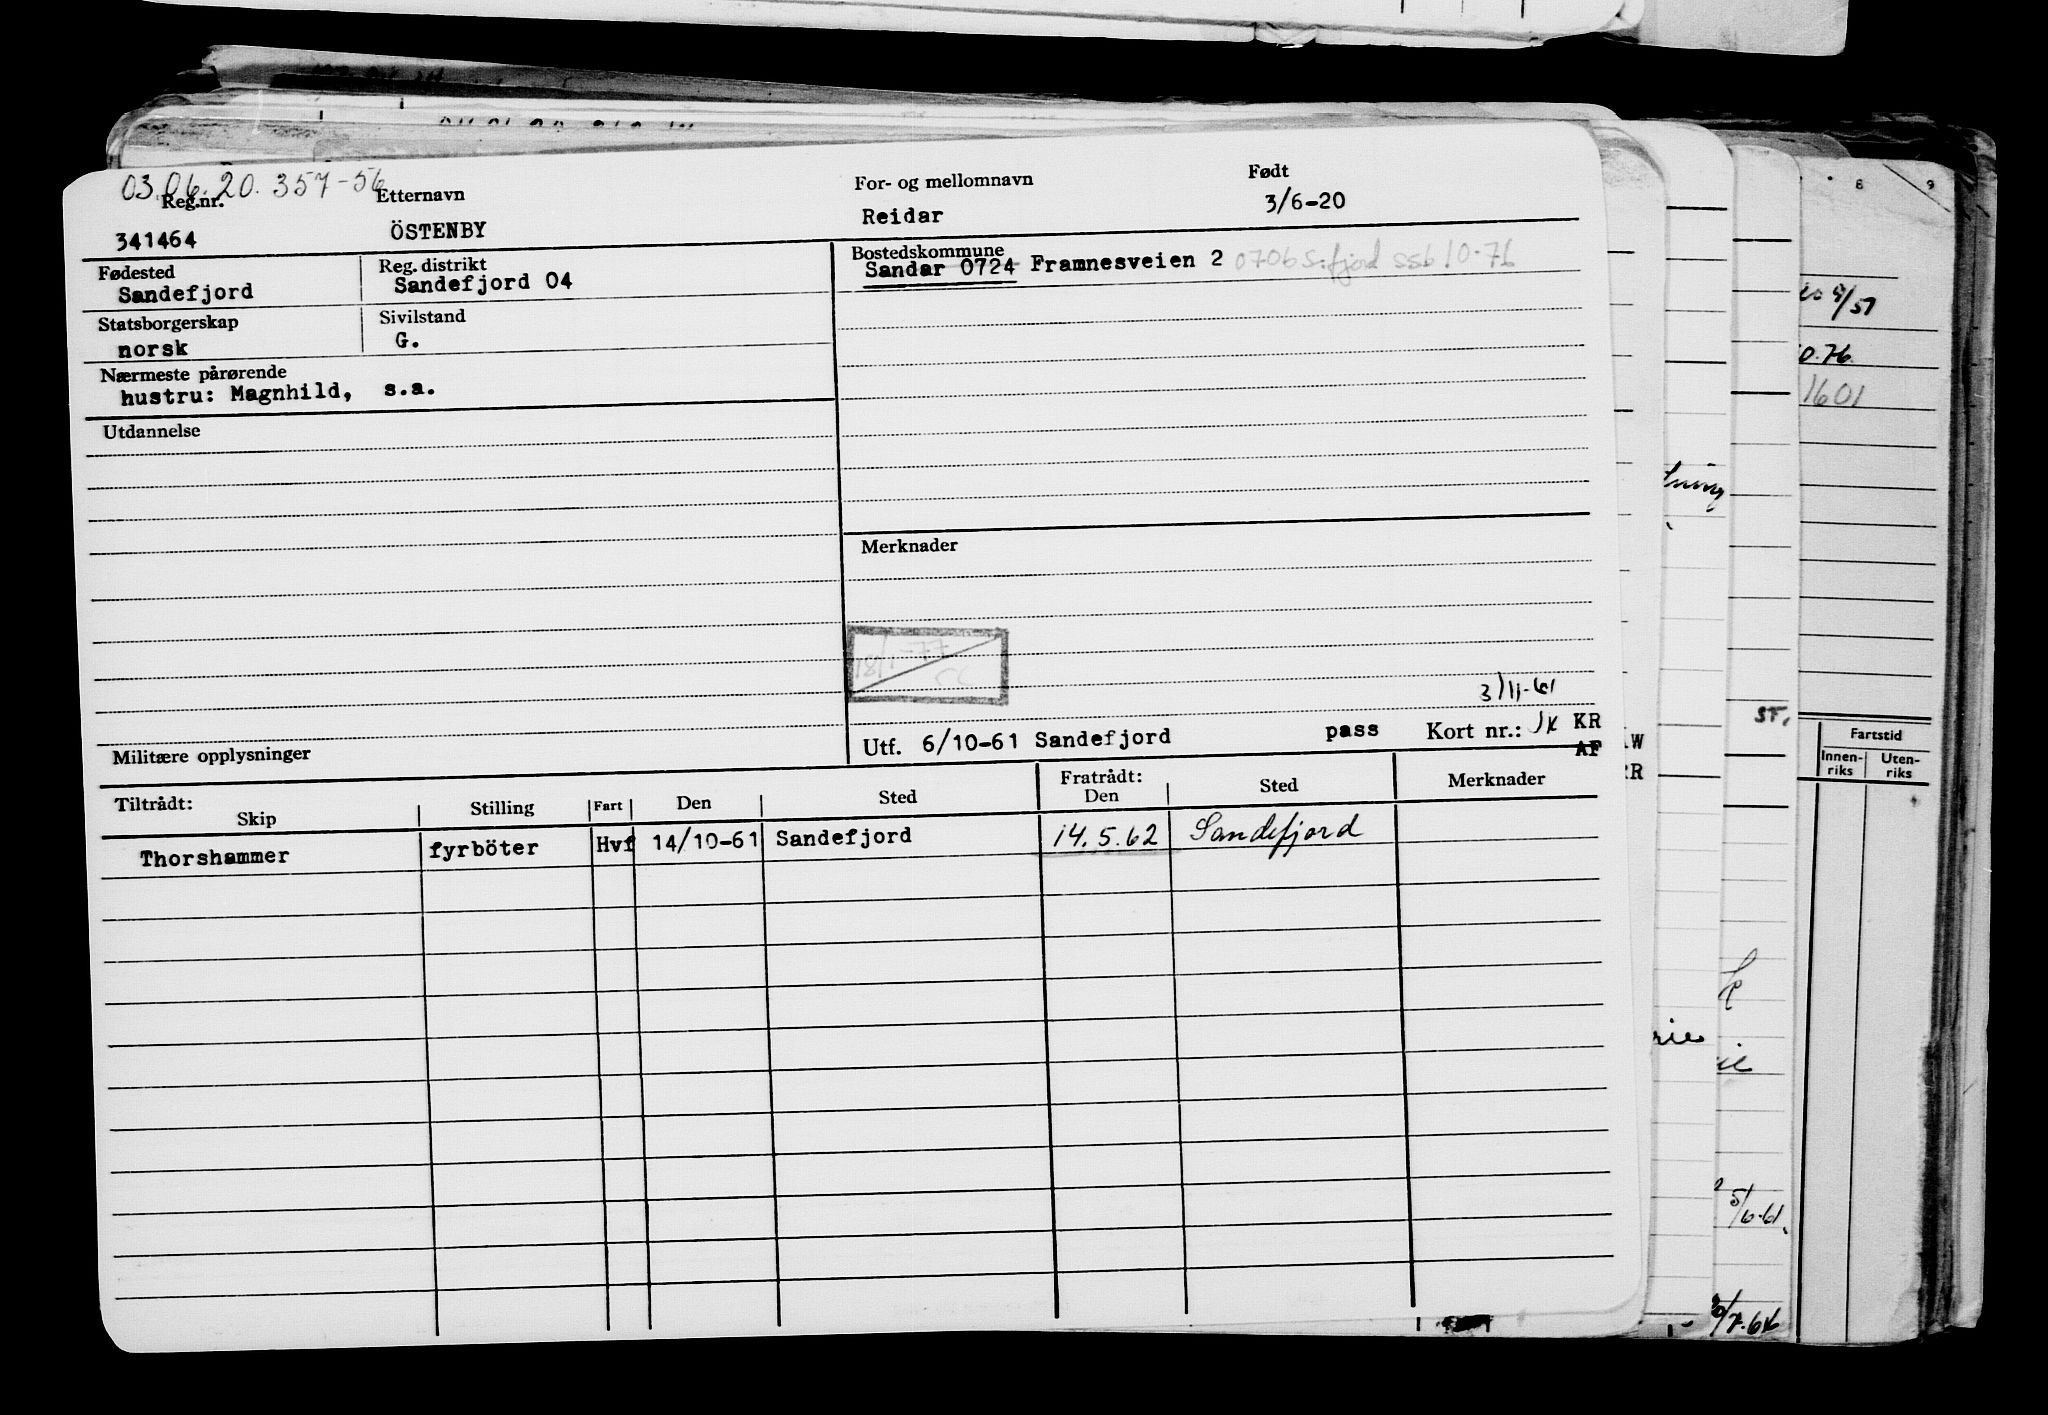 03.06.20. 357-56
Reg.nr. Etternavn For- og mellomnavn Født
341464 ÖSTENBY Reidar 3/6-20
Fødested Reg. distrikt Bostedskommune
Sandefjord Sandefjord 04 Sandar 0724 Framnesveien 2 0706 S.fjord ssb 10-76
Statsborgerskap Sivilstand
norsk G.
Nærmeste pårørende
hustru: Magnhild, s.a.
Utdannelse
Merknader
18/1-77
3/11-61
Militære opplysninger Utf. 6/10-61 Sandefjord pass Kort nr.: 1x KR
AF
Tiltrådt: Fratrådt:
Skip Stilling Fart Den Sted Den Sted Merknader
Thorshammer fyrböter Hvf 14/10-61 Sandefjord 14.5.62 Sandefjord
8 9
5/51
0.76.
1601
ST.
Fartstid
Innen-
riks
Uten-
riks
rie
5/6-61.
/7.64